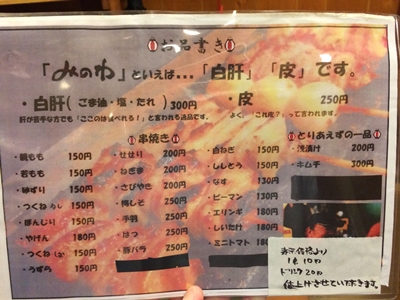 お品書き
「みのわ」といえば…「白肝」「皮」です。
・白肝(ごま油・塩・たれ) 300円
肝が苦手な方でも「ここのは食べれる!」と言われる逸品です。
・皮 250円
よく、「これ皮?」って言われます。
串焼き
・親もも 150円
・若もも 150円
・砂ずり 150円
・つくね 150円
・ぼんじり 150円
・やげん 180円
・つくね 150円
・うずら 150円
・せせり 200円
・ねぎま 200円
・さびやき 200円
・梅しそ 250円
・手羽 250円
・はつ 250円
・豚バラ 250円
・白ねぎ 150円
・ししとう 150円
・なす 130円
・ピーマン 130円
・エリンギ 150円
・しいたけ 150円
・ミニトマト 180円
とりあえずの一品
・浅漬け 200円
・キムチ 300円
1本10円
ドリンク20円
値上げさせていただきます。